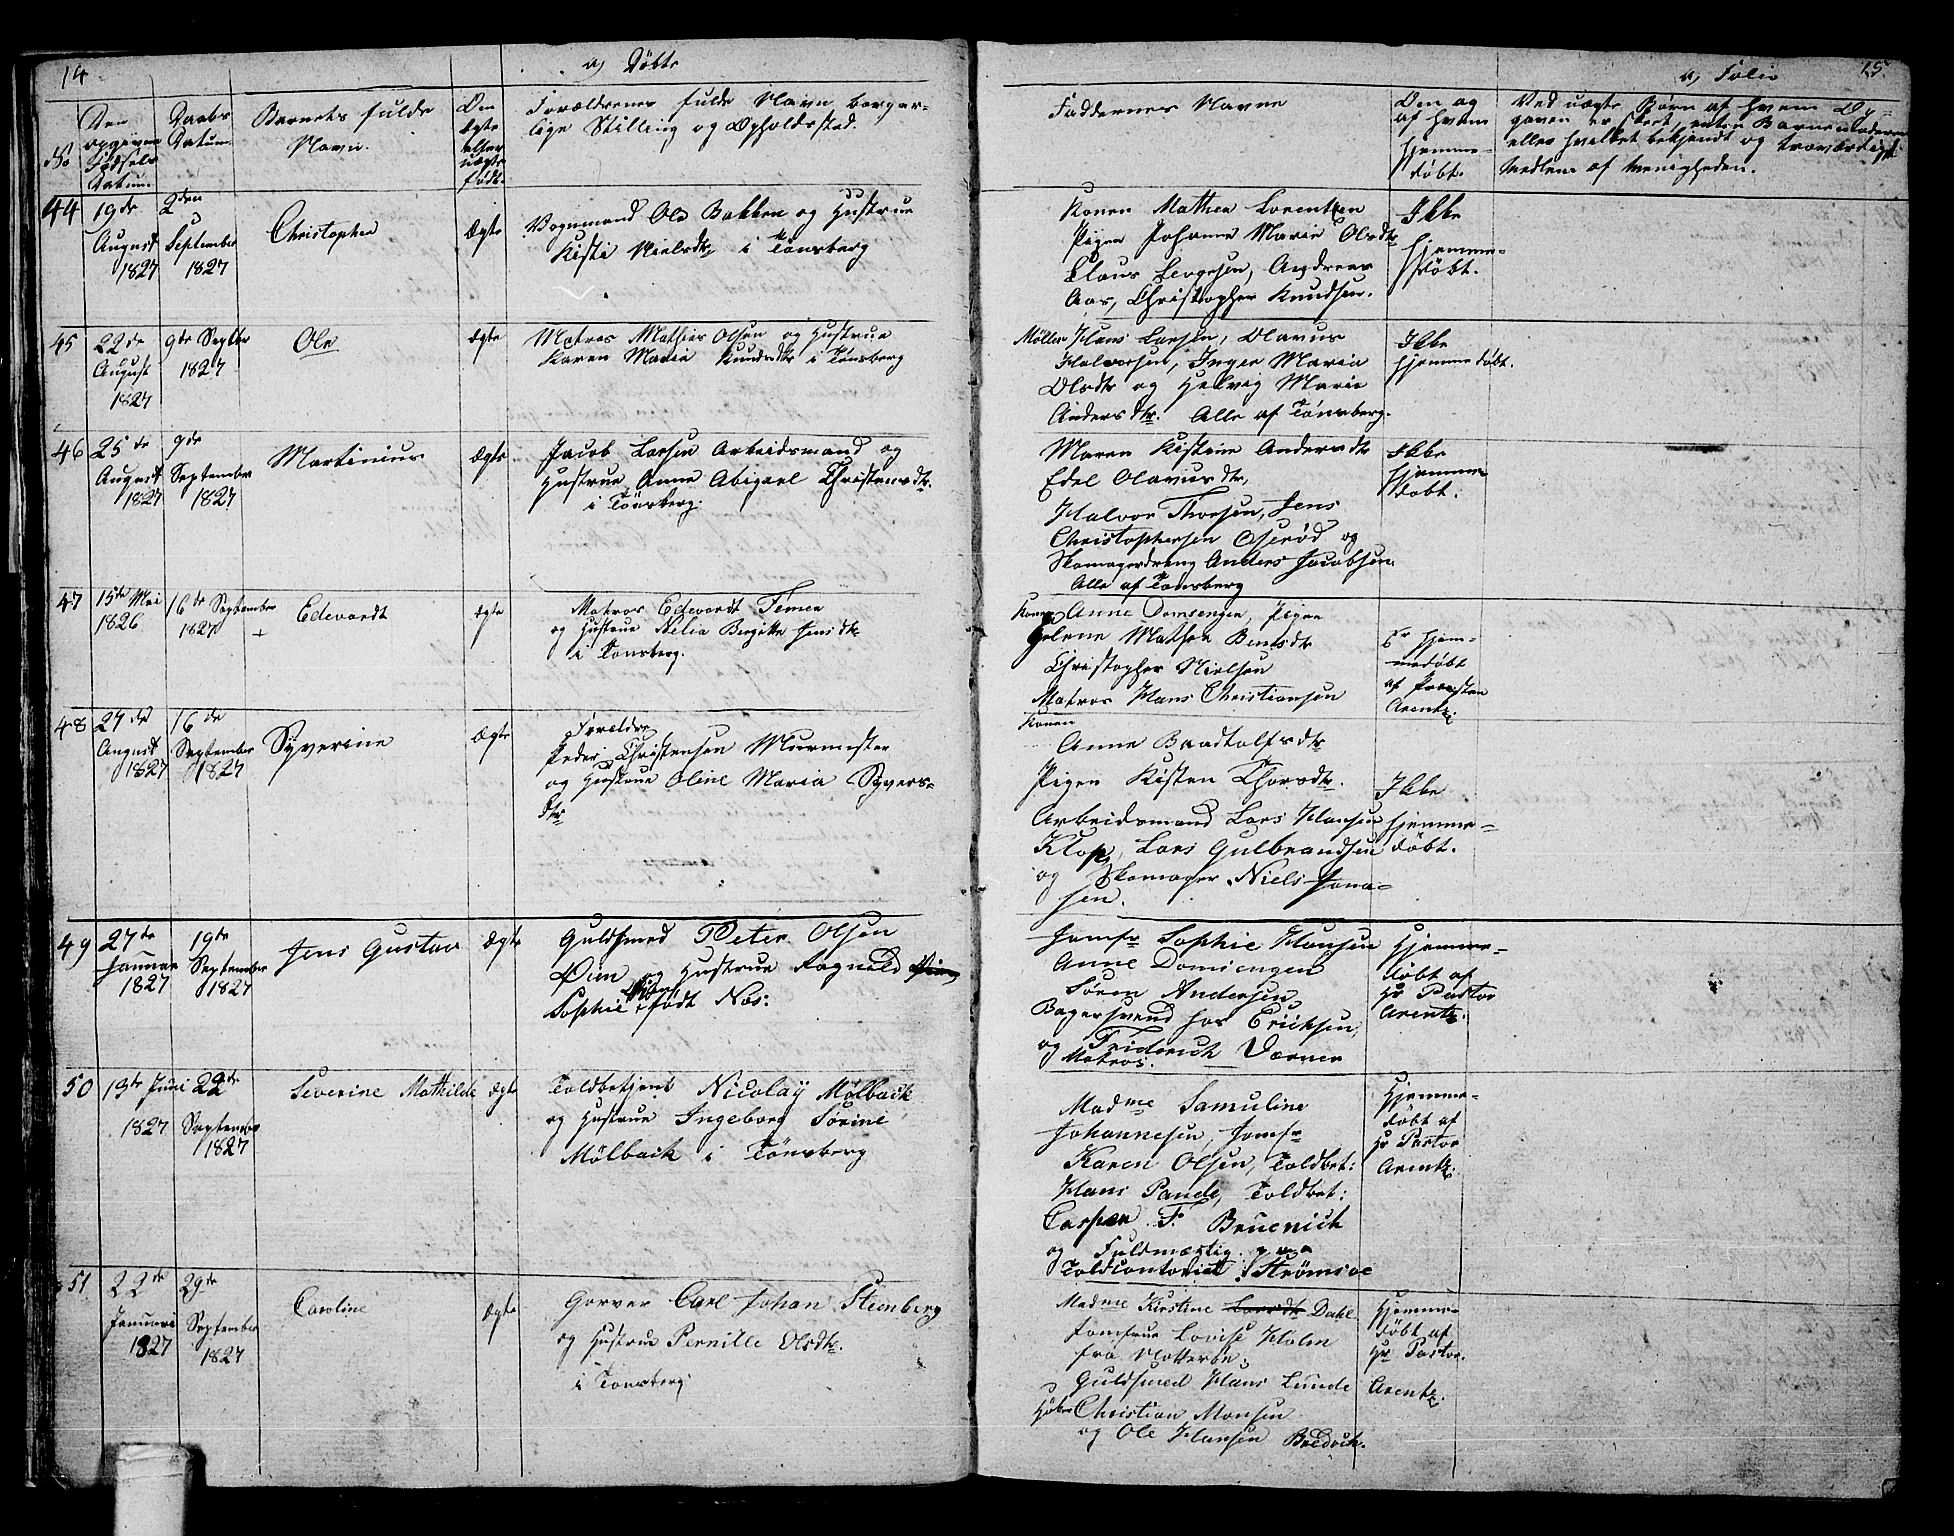 14
a) Døbte
No
Den opgivne Fødsels Datum.
Daabs Datum.
Barnets fulde Navn.
Om ægte eller uægte født.
Forældrenes fulde Navn borger-
lige Stilling og Opholdssted.
44
19de August 1827
2den September 1827
Christopher
Ægte
Vognmand Ole Bakken og Hustrue
Kisti Nielsdtr i Tönsberg
45
22de August 1827
9de Septbr 1827
Ole
Ægte
Matros Mathies Olsen og Hustrue
Karen Maria Knudsdtr i Tönsberg
46
25de August 1827
9de September 1827
Martinius
Ægte
Jacob Larsen Arbeidsmand og
Hustrue Anne Abigael Christensdtr.
i Tönsberg.
47
15de Mai 1826
16de September 1827
Edevardt
ægte
Matros Edevardt Temen
og Hustrue Nilia Birgitte Jensdtr
i Tönsberg.
48
27de August 1827
16de September 1827
Syverine
Ægte
Foreldre
Peder Christensen Muurmester
og Hustrue Oline Maria Syvers-
dtr
49
27de Januar 1827
19de September 1827
Jens Gustav
Ægte
Guldsmed Peter Olsen
Øien og Hustrue Ragnild
Sophie født Næs:
50
19de Juni 1827
22de September 1827
Severine Mathilde
Ægte
Toldbetjent Nicolaÿ Mølback
og Hustrue Ingeborg Sörine
Mölback i Tönsberg
51
22de Januari 1827
29de September 1827
Caroline
Ægte
Garver Carl Johan Steenberg
og Hustrue Pernille Olsdtr.
i Tonsberg
a) Folio
15
Faddernes Navne
Om og af hvem hjemme-døbt.
Ved uægte Børn af hvem Op-
gaven er skeet, enten Barnemoderen
eller hvilket bekjendt og troværdigt
Medlem af Menigheden.
Konen Mathea Lorentzen
Pigen Johanne Marie Olsdtr
Claus Levgesen, Andreas
Aas, Christopher Knudsen.
Ikke hjemme-døbt.
Møller Hans Larsen, Olavus
Halvorsen, Inger Maria
Olsdtr og Helvig Maria
Andersdtr. Alle af Tönsberg.
Ikke hjemme døbt.
Maren Kistine Andersdtr
Edel Olavusdtr,
Halvor Thorsen, Jens
Christophersen Oserød og
Skomagerdreng Anders Jacobsen.
Alle af Tönsberg
Ikke hjemme døbt.
Konen Anne Domsengen, Pigen
Helene Mathea Bentsdtr
Christopher Nielsen
Matros Hans Christiansen
Er hjem-
medøbt
af Præsten
Arentz.
Konen
Anne Bradtolfsdtr
Pigen Kisten Thorsdtr.
Arbeidsmand Lars Hansen
Klop, Lars Gulbrandsen
og Skomager Niels Jona-
sen.
Ikke
hjemme-
døbt.
Jomfr Sophie Hansen
Anne Domsengen
Sören Andersen
Bagersvend hos Ericksen,
og Friderich Værner
Matros.
Hjemme-
døbt af
Hr Pastor
Arentz.
Madme Samuline
Johannesen, Jomfr
Karen Olsen, Toldbet:
Hans Pande, Toldbet:
Casper F. Bruenich
og Fuldmægtig paa
Toldcontoriet Strömsøe
Hjemme-
døbt af
Hr Pastor
Arentz.
Madme Kirstine Larsdtr Dahl
Jomfrue Lovise Holm
fra Notterøe,
Guldsmed Hans Lunde
Christian Monsen
og Ole Hansen Bredvik.
Hjemme-
døbt af
Hr Pastor.
Arentz.